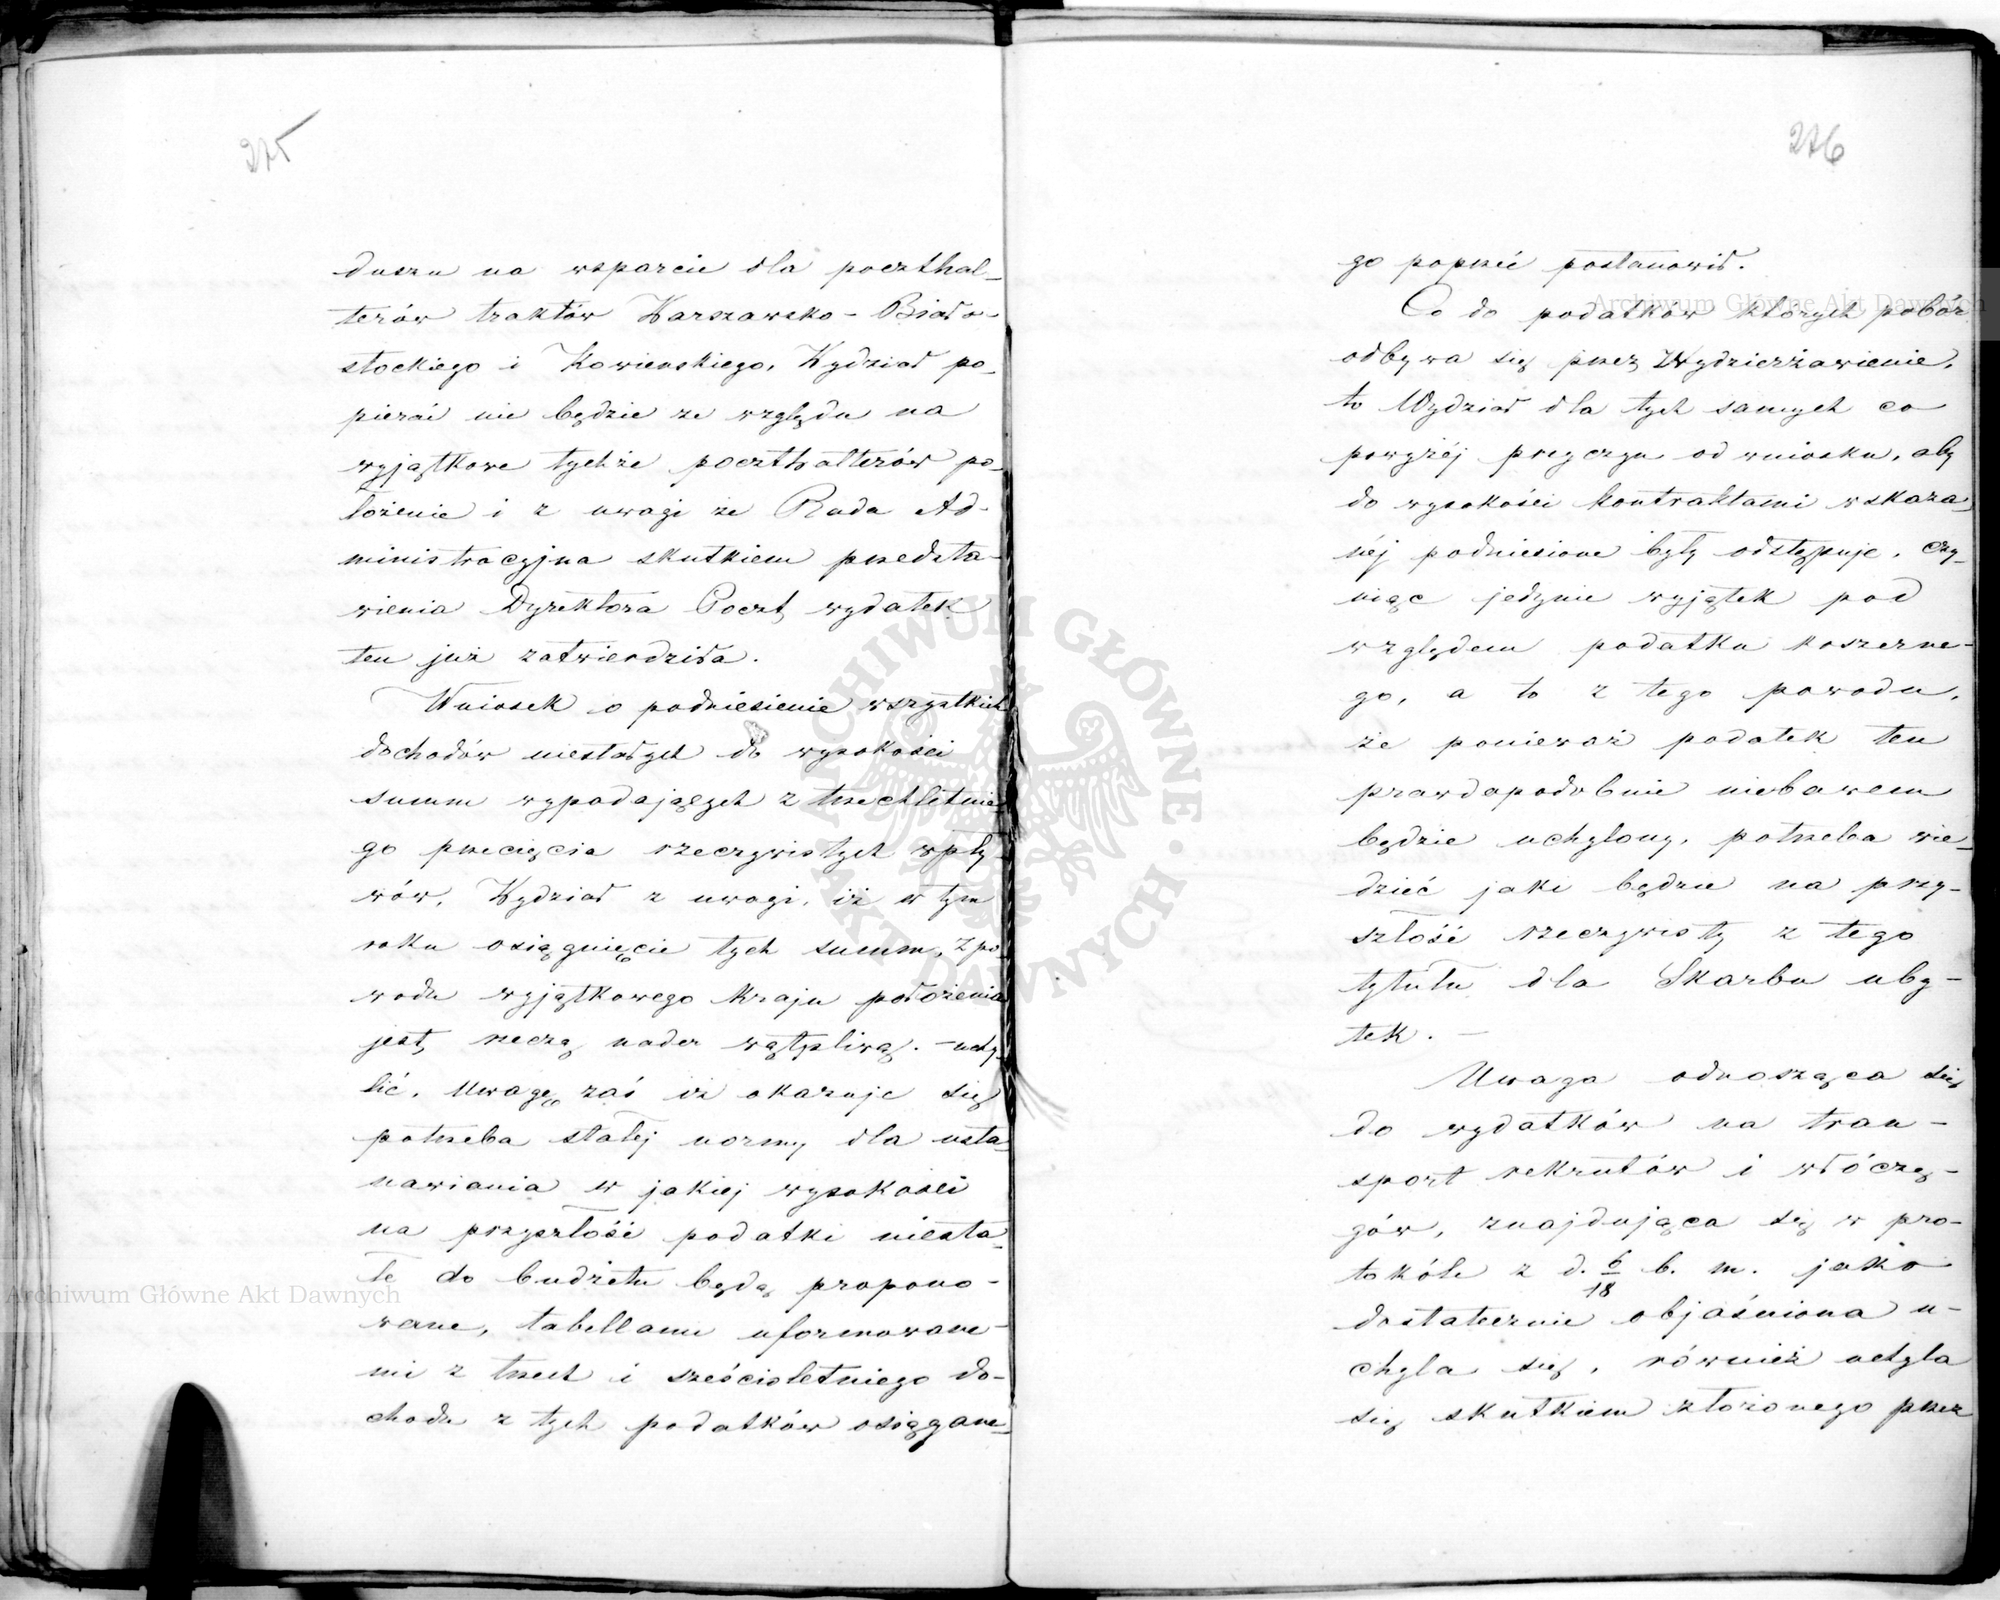 275
duszu na wsparcie dla poczthal-
terów traktów Warszawsko-Biało-
stockiego i Kowieńskiego, Wydział po-
pierać nie będzie ze względu na
wyjątkowe tychże poczthalterów po-
łożenie i z uwagi że Rada Ad-
ministracyjna skutkiem przedsta-
wienia Dyrektora Poczt, wydatek
ten już zatwierdziła.
Wniosek o podniesienie wszystkich
dochodów niestałych do wysokości
summ wypadających z trzechletnie-
go przecięcia rzeczywistych wpły-
wów, Wydział z uwagi, iż w tym
roku osiągnięcie tych summ, z po-
wodu wyjątkowego kraju położenia
jest, rzeczą nader wątpliwą. – uchy-
lić. Uwagę zaś iż okazuje się
potrzeba stałej normy dla usta-
nawiania w jakiej wysokości
na przyszłość podatki niesta-
łe do budżetu będą propono-
wane, tabellami uformowane-
mi z trzech i sześcioletniego do-
chodu z tych podatków osiągane-
276
go poprzeć postanowił.
Co do podatków których pobór
odbywa się przez Wydzierżawienie,
to Wydział dla tych samych co
powyżéj przyczyn od wniosku, aby
do wysokości kontraktami wskaza-
néj podniesione były odstępuje, czy-
niąc jedynie wyjątek pod
względem podatku koszerne-
go, a to z tego powodu,
że ponieważ podatek ten
prawdopodobnie niebawem
będzie uchylony, potrzeba wie-
dzieć jaki będzie na przy-
szłość rzeczywisty z tego
tytułu dla Skarbu uby-
tek. –
Uwaga odnosząca się
do wydatków na tran-
sport rekrutów i włóczę-
gów, znajdująca się w pro-
tokóle z d. 6/18 b. m. jako
dostatecznie objaśniona u-
chyla się, również uchyla
się skutkiem złożonego przez
Archiwum Główne Akt Dawnych
Archiwum Główne Akt Dawnych
ARCHIWUM GŁÓWNE AKT DAWNYCH